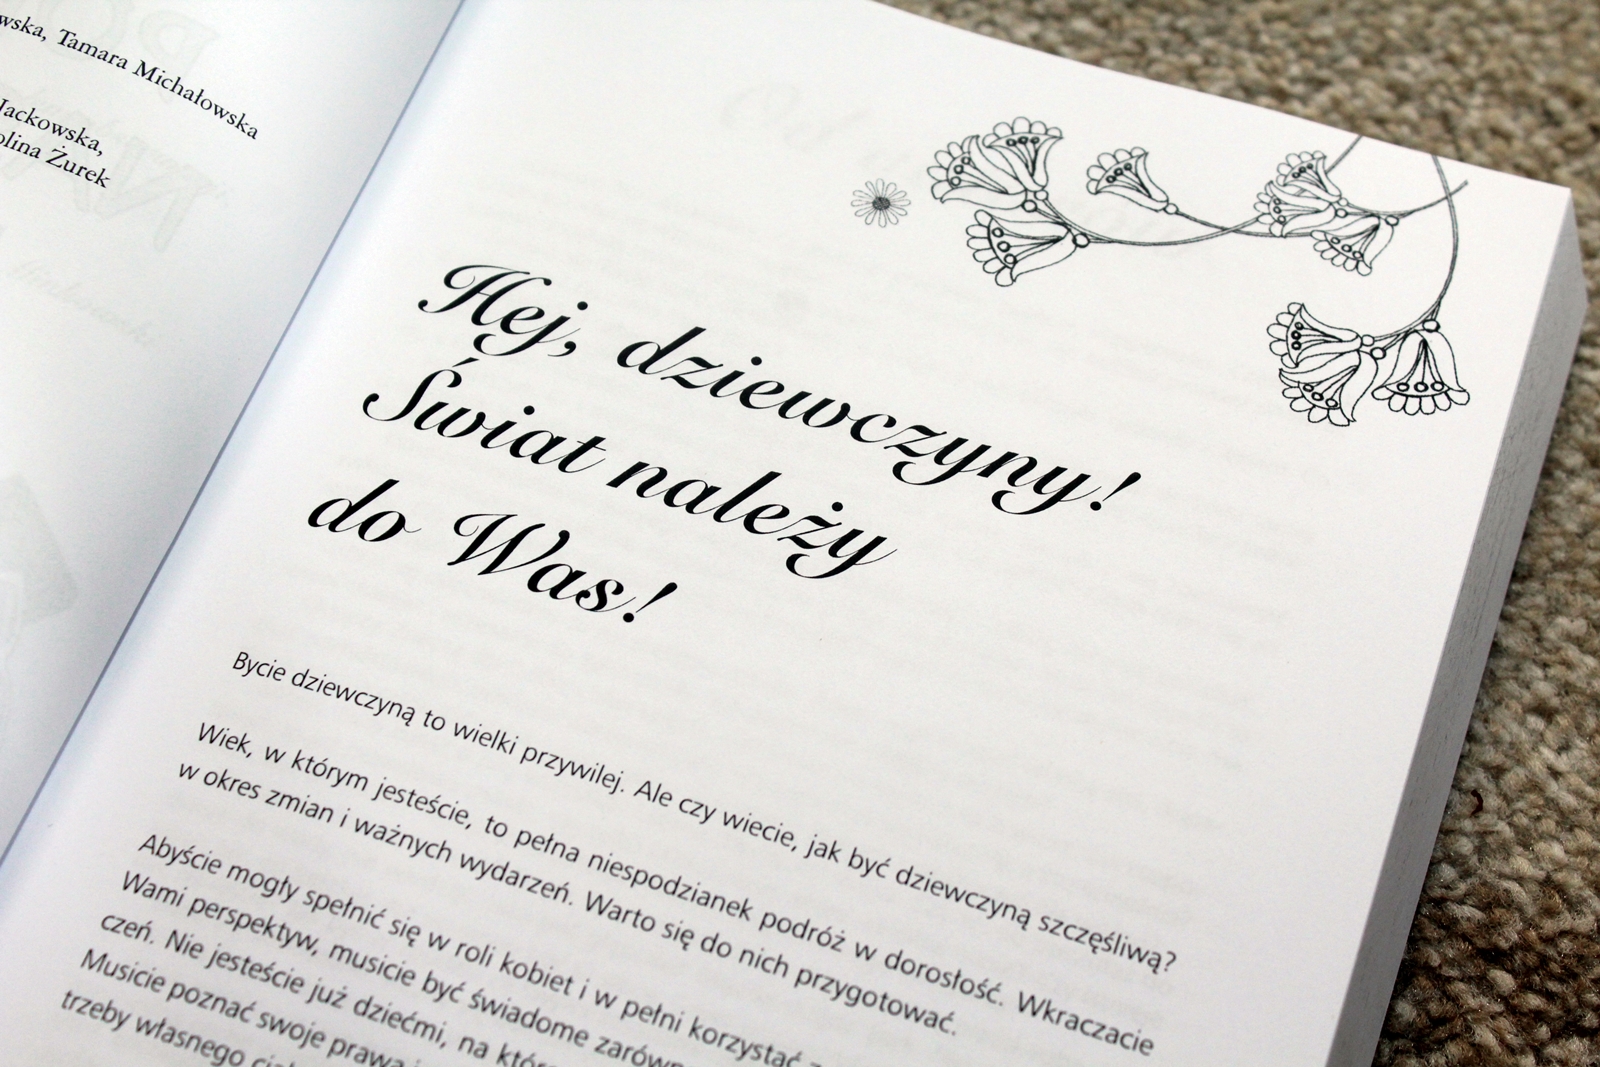 wska, Tamara Michałowska
Jackowska,
olina Żurek
Hej, dziewczyny!
Świat należy
do Was!
Bycie dziewczyną to wielki przywilej. Ale czy wiecie, jak być dziewczyną szczęśliwą?
Wiek, w którym jesteście, to pełna niespodzianek podróż w dorosłość. Wkraczacie
w okres zmian i ważnych wydarzeń. Warto się do nich przygotować.
Abyście mogły spełnić się w roli kobiet i w pełni korzystać z
Wami perspektyw, musicie być świadome zarówn
czeń. Nie jesteście już dziećmi, na któr
Musicie poznać swoje prawa i
trzeby własnego ciał